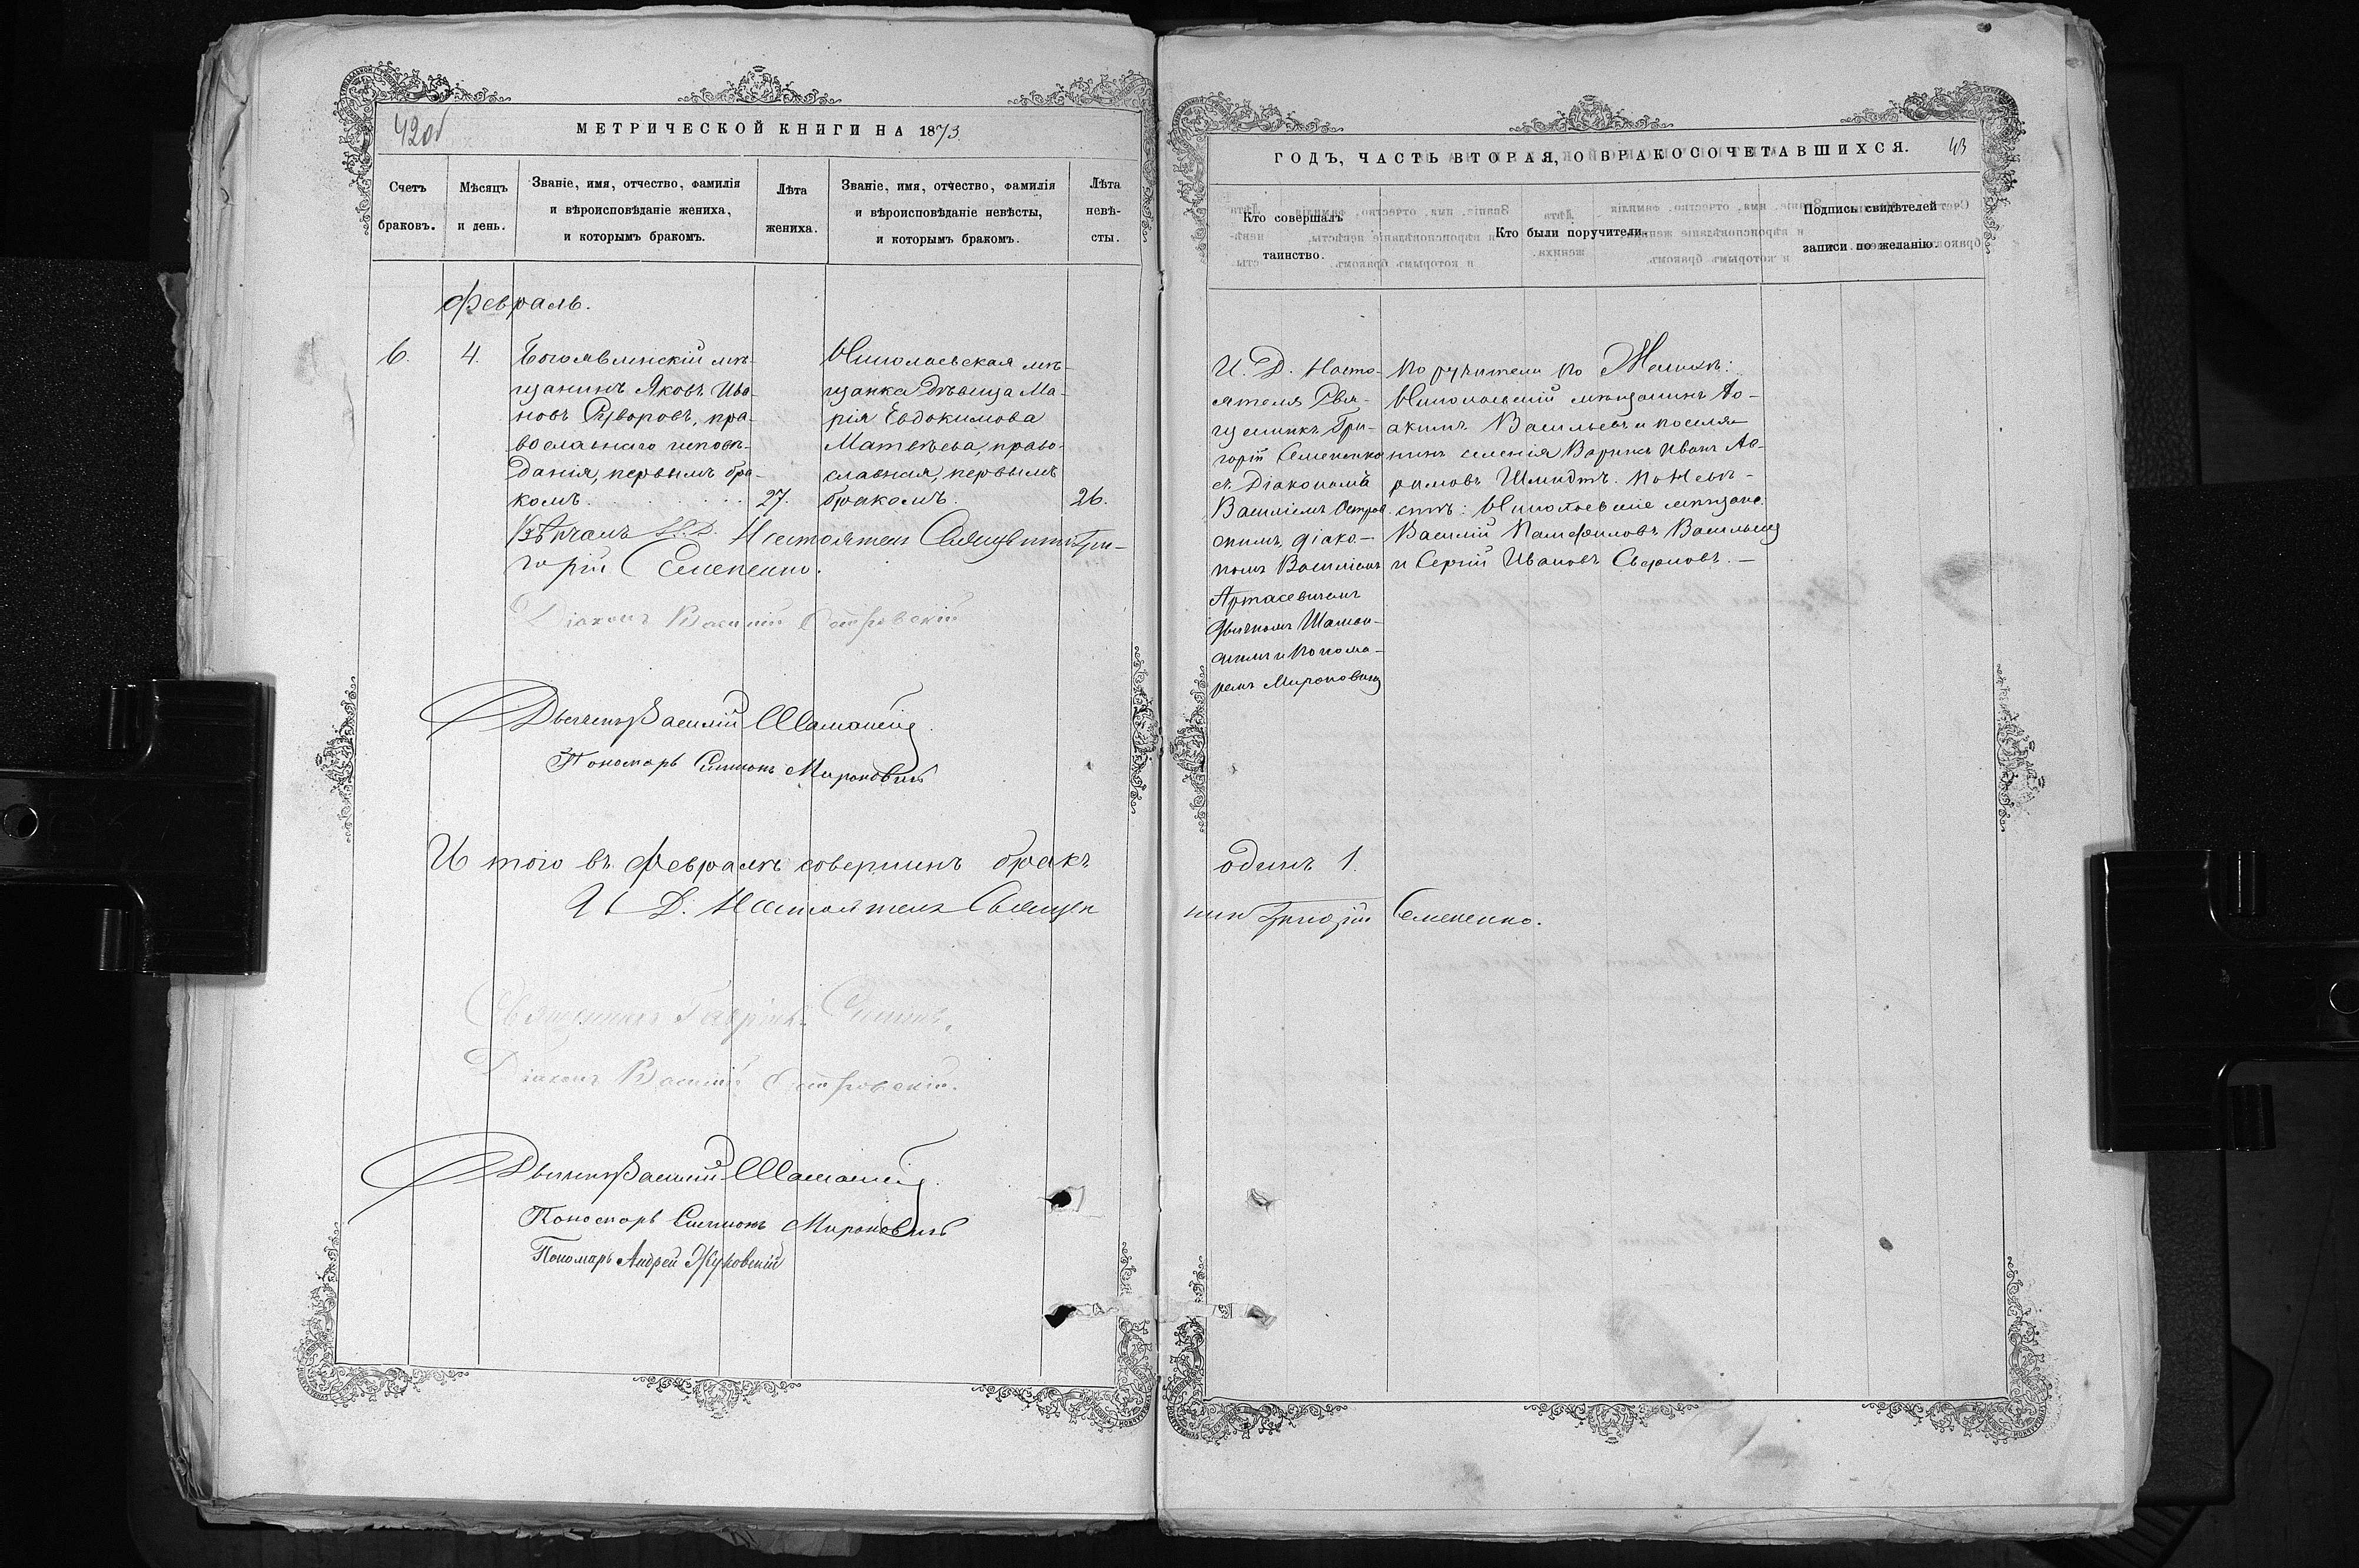 42об
МЕТРИЧЕСКОЙ КНИГИ НА 1873.
Счетъ браковъ.
Мѣсяцъ и день.
Званіе, имя, отчество, фамилія
и вѣроисповѣданіе жениха,
и которымъ бракомъ.
Лѣта
жениха.
Званіе, имя, отчество, фамилія
и вѣроисповѣданіе невѣсты,
и которымъ бракомъ.
Лѣта
невѣ-
сты.
Февраль.
6. 4.
Богоявленскій мѣ-
щанинъ Яковъ Ива-
новъ Суворовъ, пра-
вославнаго исповѣ-
данія, первымъ бра-
комъ. 27.
Николаевская мѣ-
щанка Дѣвица Ма-
рія Евдокимова
Матвѣева, право-
славная, первымъ
бракомъ. 26.
Вѣнчалъ И.Д. Настоятеля Священникъ Гри-
горій Семененко.
Діаконъ Василій Островскій
Дьячекъ Василій Шаманскій
Пономарь Симеонъ Мироновичъ
Итого въ Февралѣ совершенъ бракъ
И Д. Настоятеля Священ
Священникъ Гавріилъ
Діаконъ Василій Островскій.
Дьячекъ Василій Шаманскій
Пономарь Симеонъ Мироновичъ
Пономарь Андрей Жуковскій
ГОДЪ, ЧАСТЬ ВТОРАЯ, О БРАКОСОЧЕТАВШИХСЯ. 43
Кто совершалъ
таинство.
Кто были поручители.
Подпись свидѣтелей
записи по желанію.
И. Д. Насто-
ятеля Свя-
щенникъ Гри-
горій Семененко
съ Діакономъ
Василіемъ Остров
скимъ, діако-
номъ Василіемъ
Артасевичемъ
Дьячкомъ Шаман-
скимъ и Понома-
ремъ Мироновичемъ
Поручители по Женихѣ:
Николаевскій мѣщанинъ Іо-
акимъ Васильевъ и поселя-
нинъ селенія Варинъ Иванъ Ав-
рамовъ Шмидтъ. По Невѣ-
стѣ: Николаевскіе мѣщане
Василій Памфиловъ Васильевъ
и Сергій Ивановъ Сафоновъ. —
одинъ 1.
никъ Григорій Семененко.